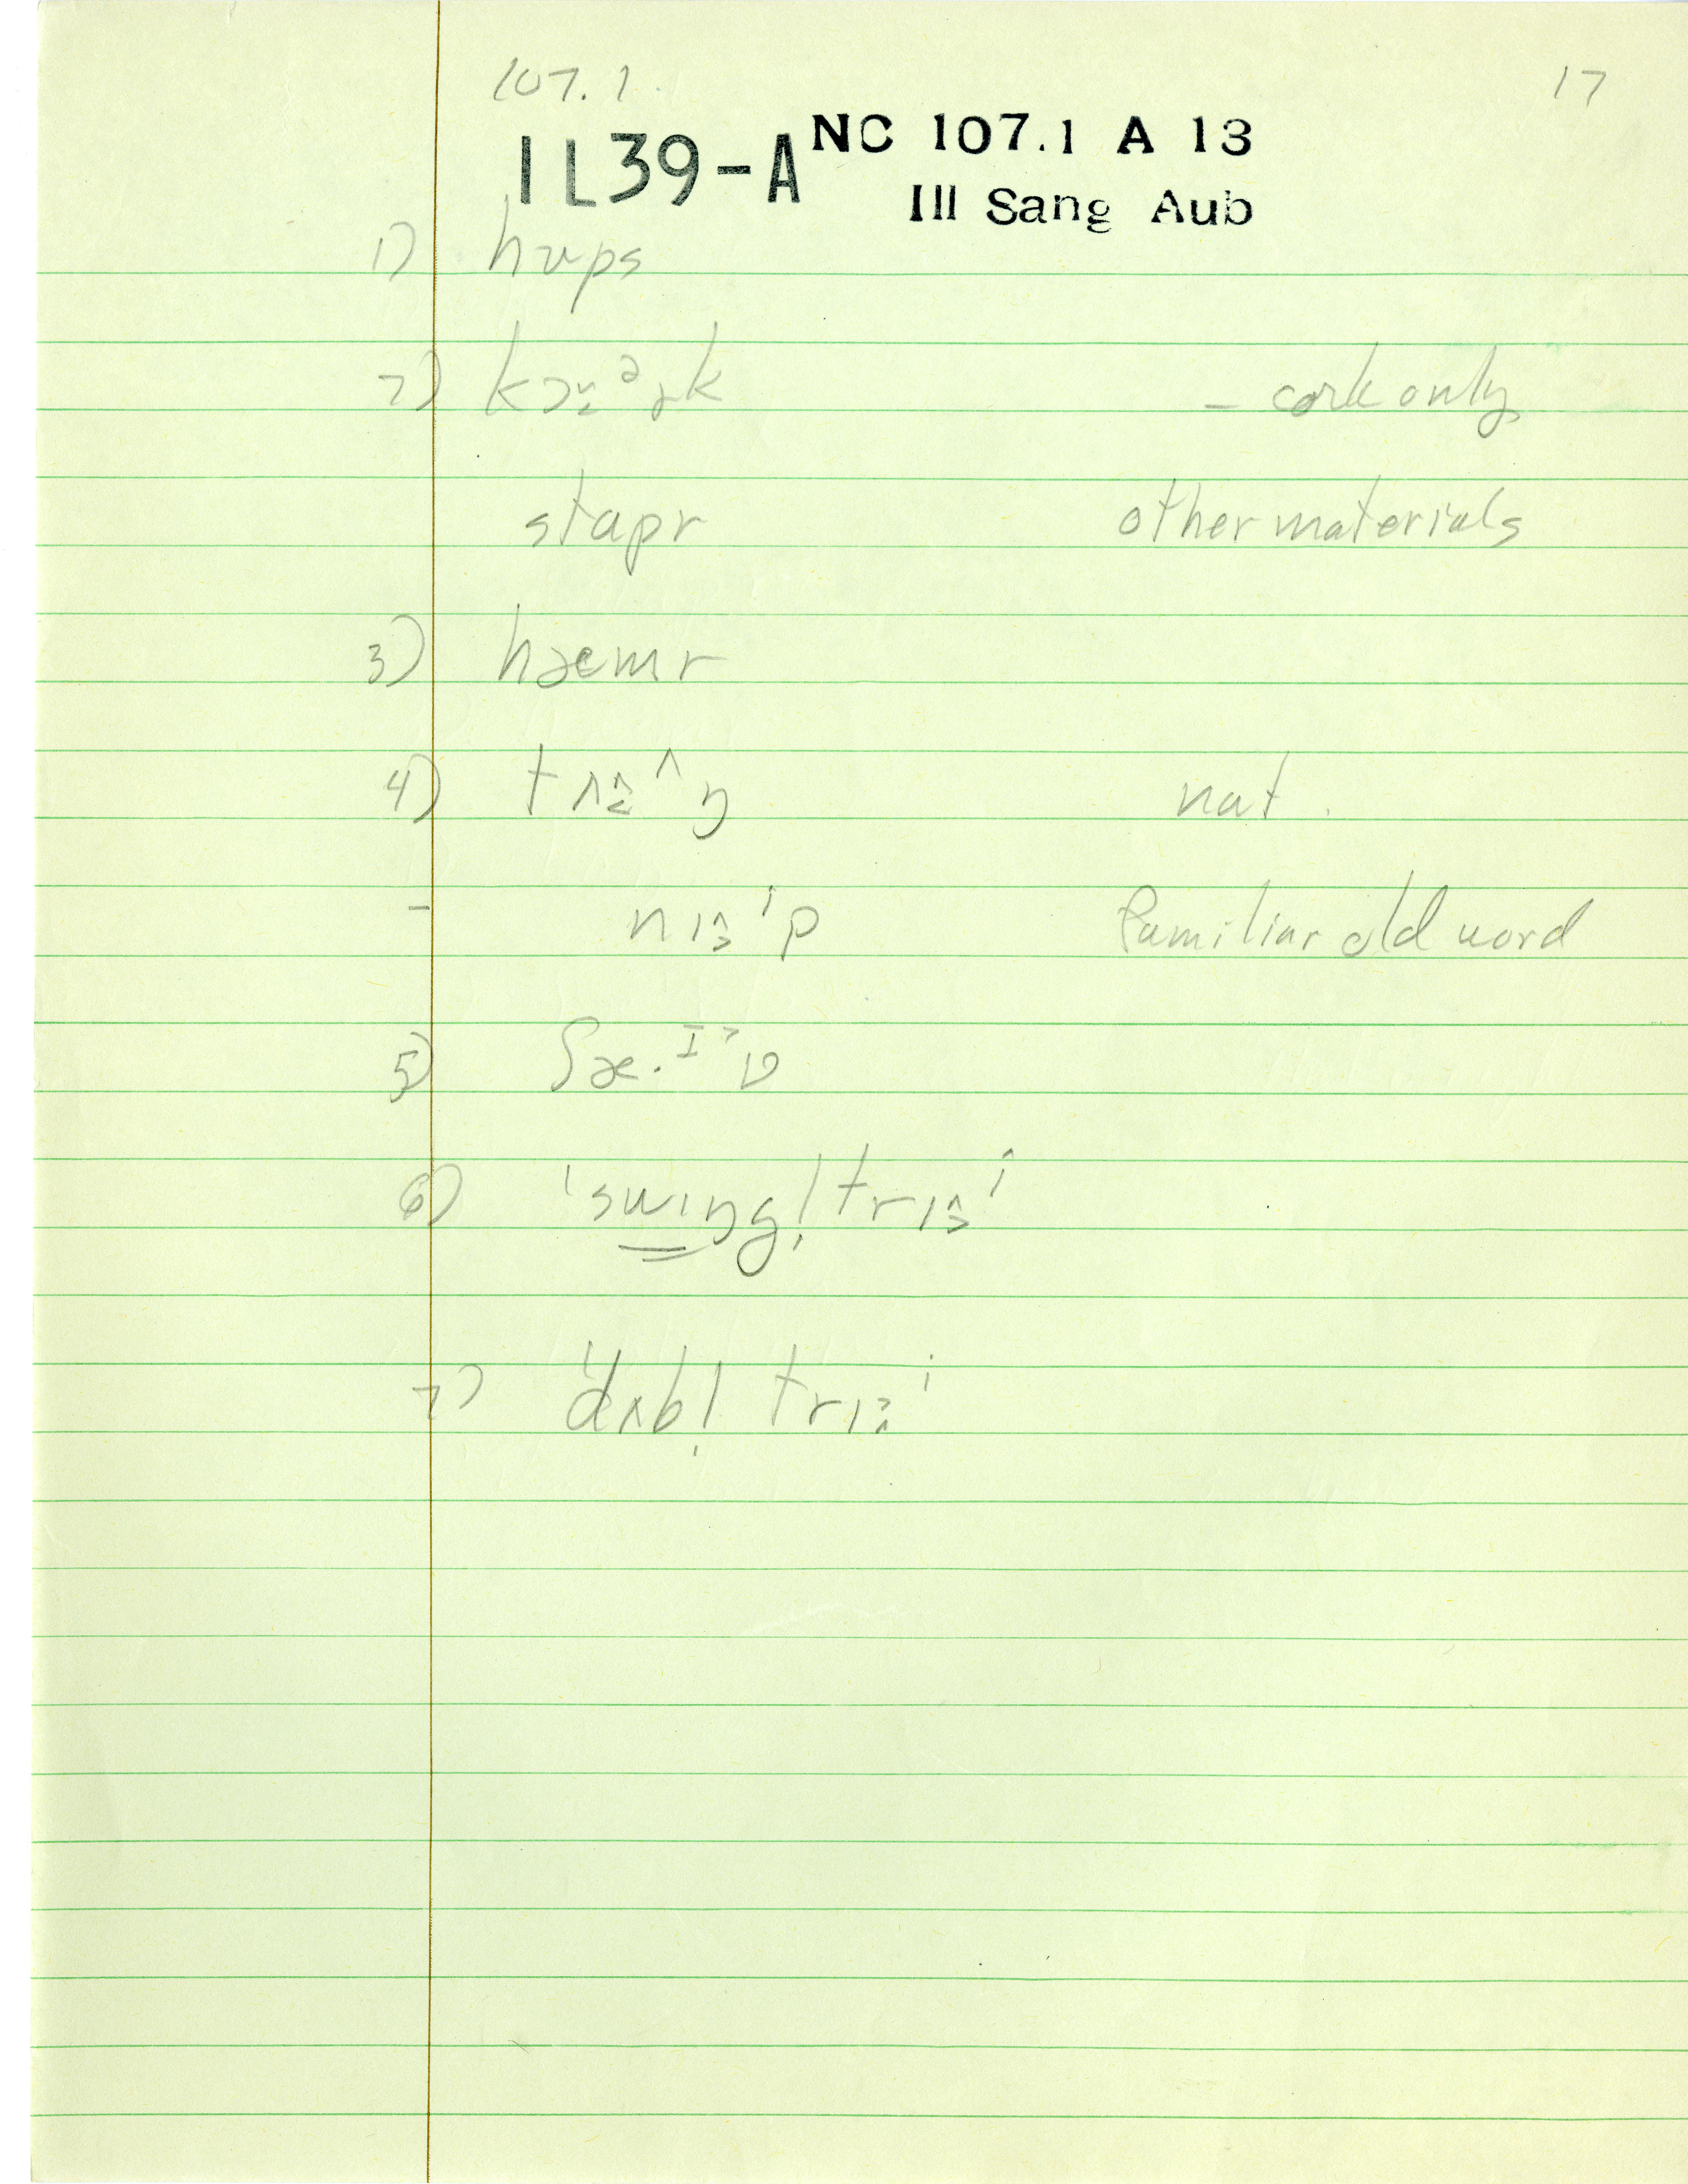 107.1. 17
1L39-A NC 107.1 A 13
Ill Sang Aub
1) hʊps
2) kɔˬ˂ᵊɚk – cork only
stapr other materials
3) hæmr
4) tʌ˄˂^ŋ nat.
- nɪ˄˃ⁱp familiar old word
5) ʃæ.ᴵ˃v
6) 'swɪŋgl̩trɪ˄˃ⁱ
7) 'dʌbl̩ trɪ˃˄ⁱ